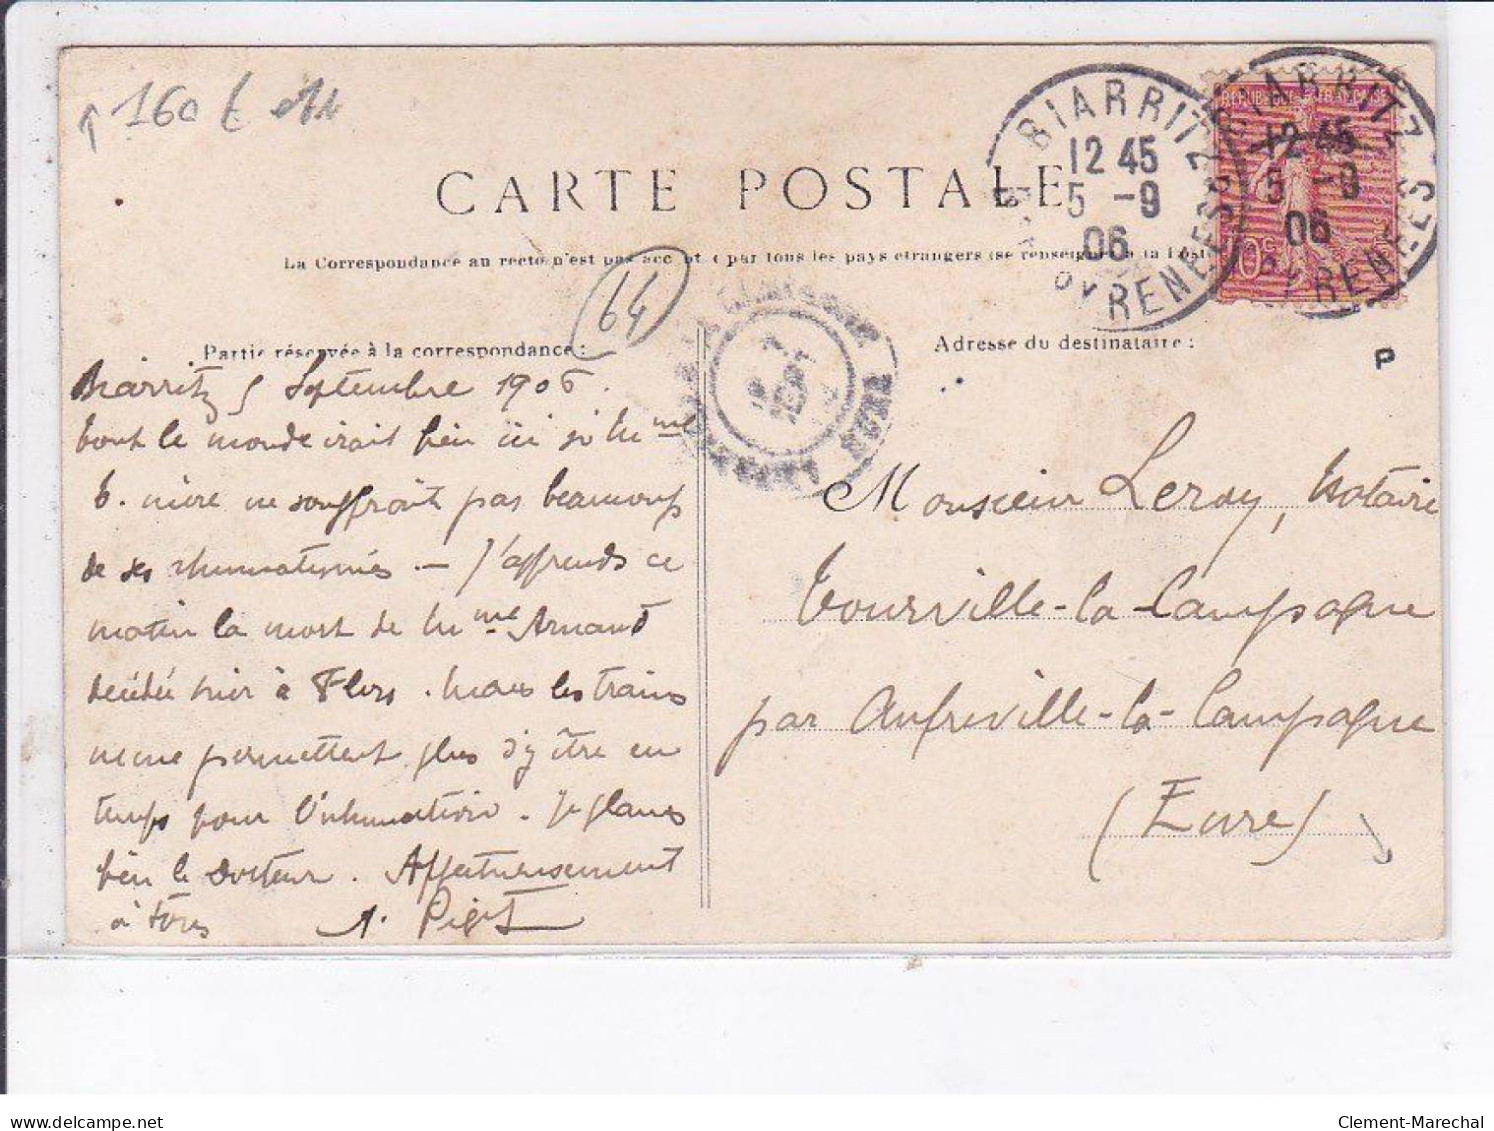 160 €
CARTE POSTALE
La Correspondance au recto n'est pas acc par tous les pays étrangers (se renseigner à la Poste
64
BIARRITZ
12 45
5 -9
06
PYRENEES
BIARRITZ
12 45
5 -9
06
PYRENEES
REPUBLIQUE FRANCAISE
10c
EURE
P
Partie réservée à la correspondance :
Biarritz 5 Septembre 1906.
tout le monde irait bien ici si Mme
b. mère ne souffrait pas beaucoup
de ses rhumatismes — J'apprends ce
matin la mort de Mme Arnaud
décédée hier à Flers. Mais les trains
ne me permettent plus d'y être en
temps pour l'inhumation. Je plains
bien le Docteur. Affectueusement
à tous
Adresse du destinataire :
Monsieur Leroy, Notaire
Tourville-la-Campagne
par Amfreville-la-Campagne
(Eure)
Clement-Marechal
delcampe.net